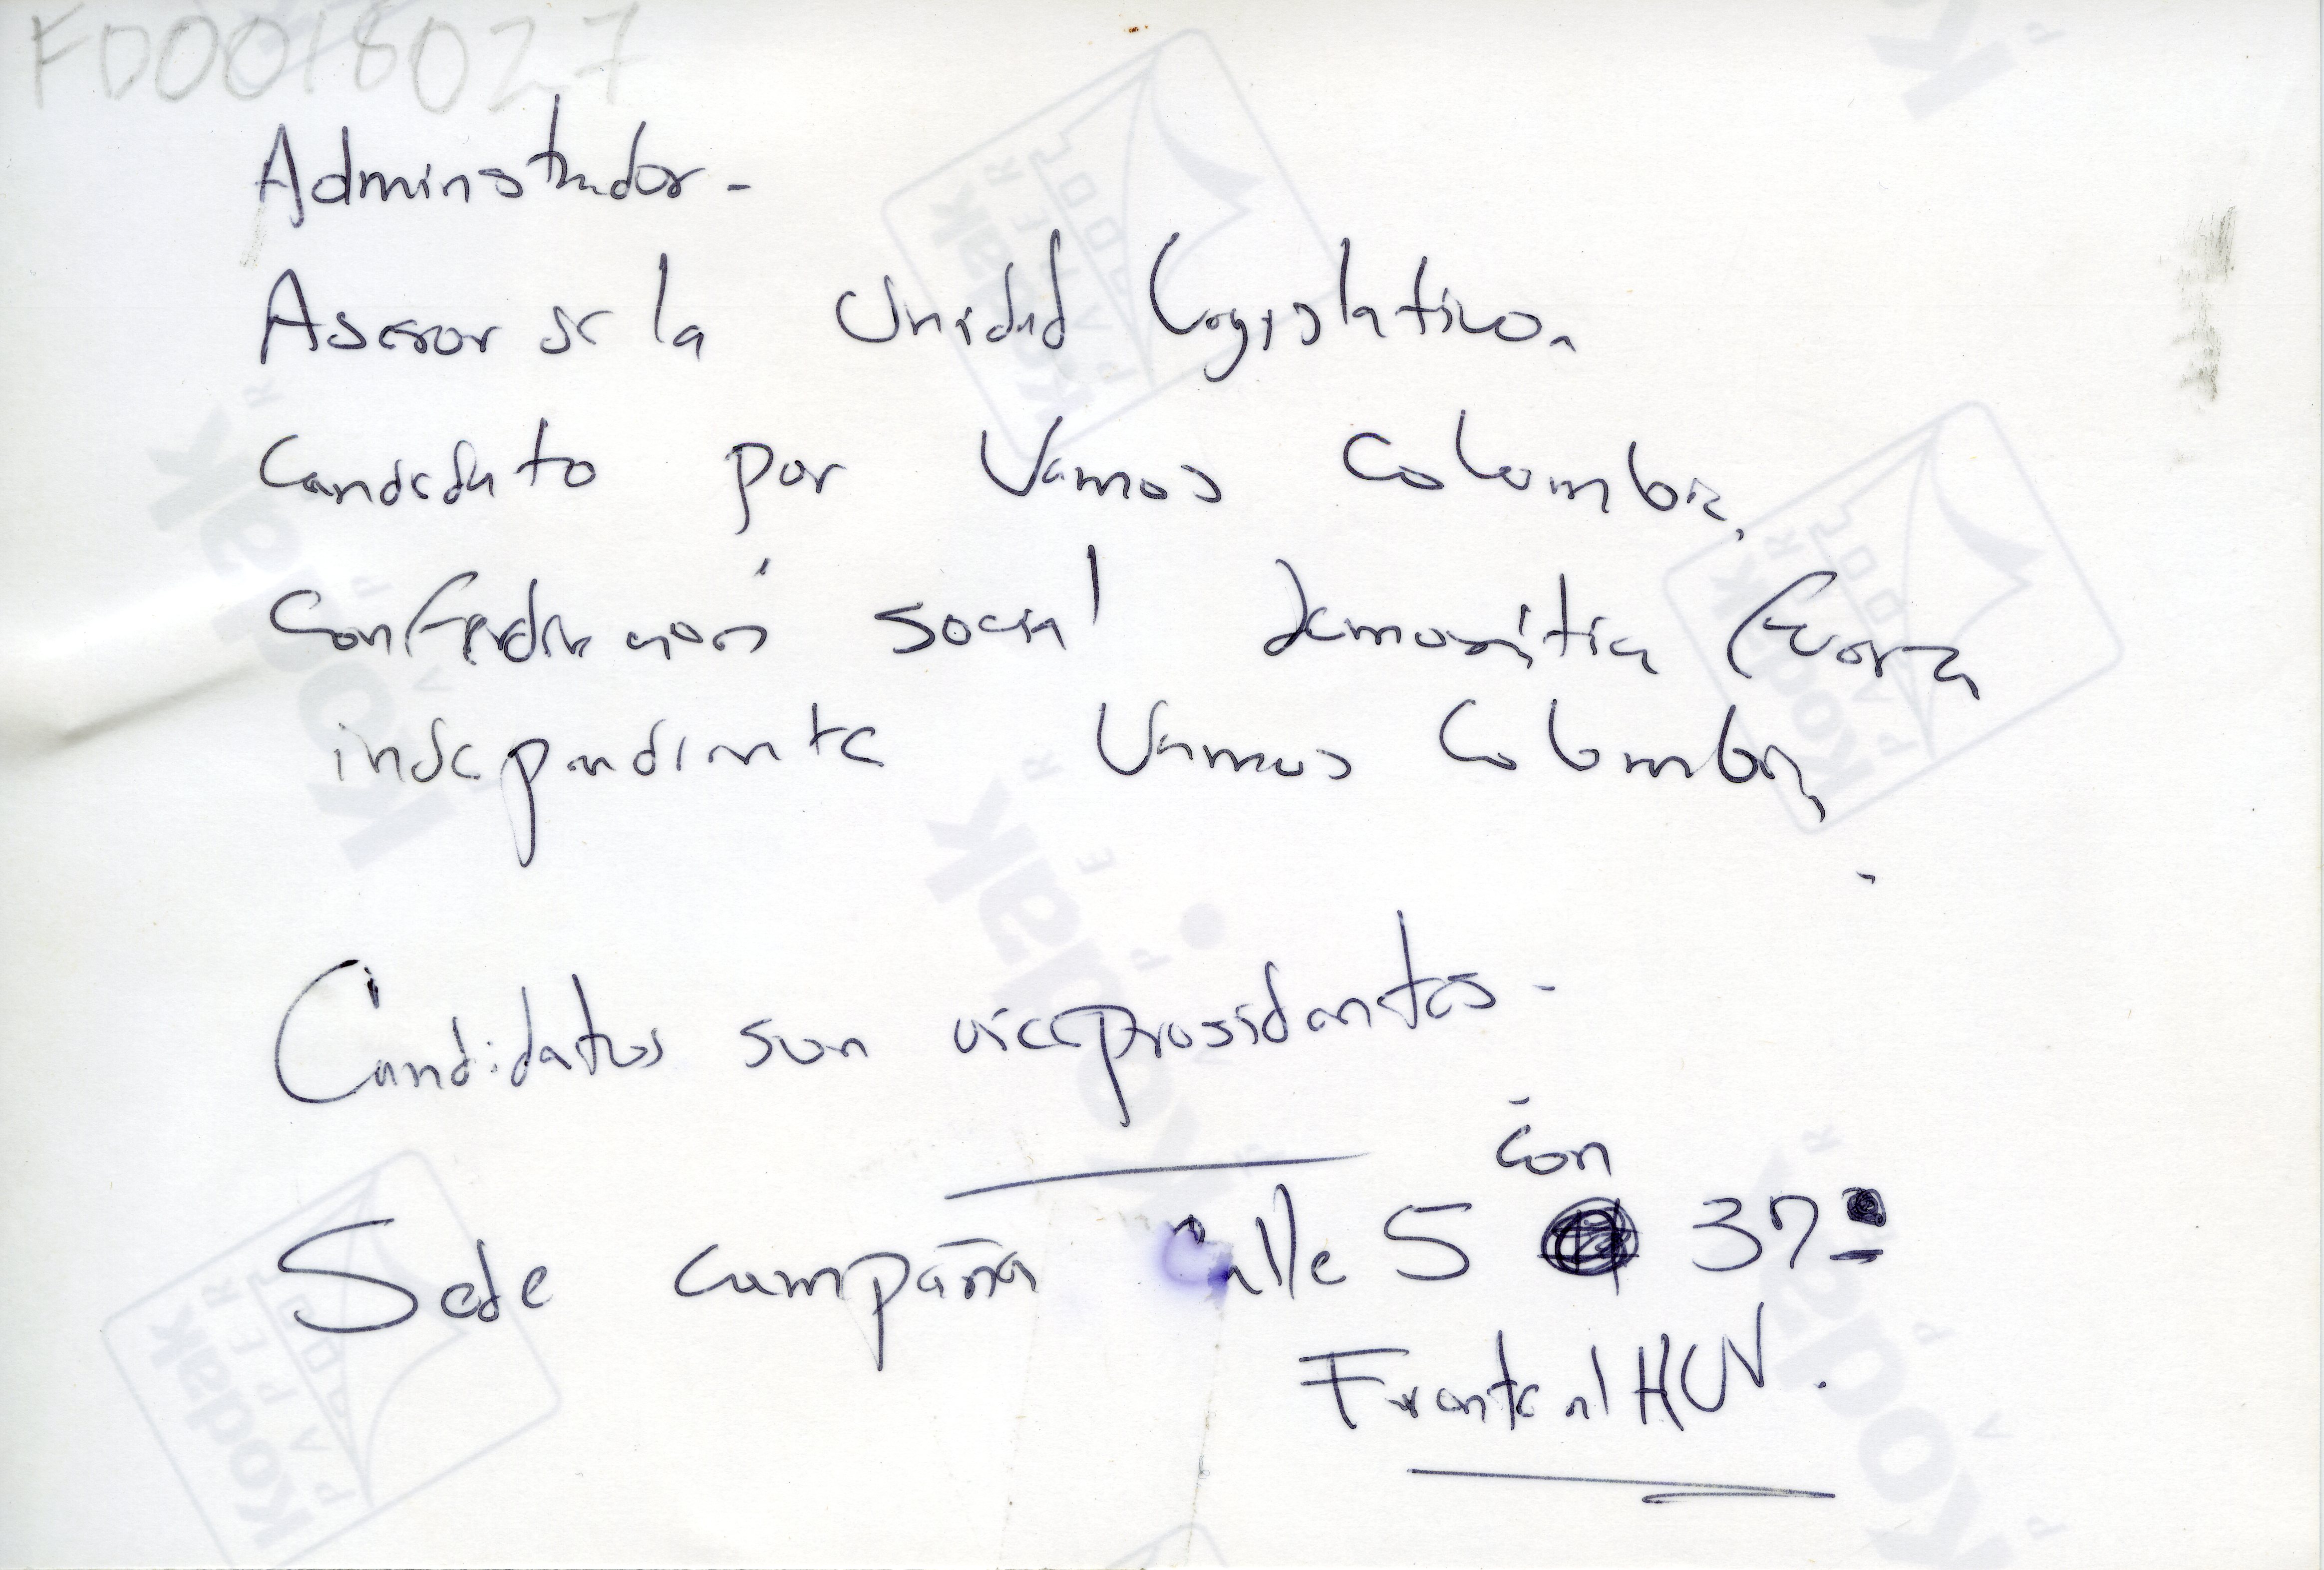 FD0018027
Adminstrador -
Asesor de la Unidad Legislativa.
Candidato por Vamos Colombia.
Confederación social democrática Fuerza
independiente Vamos Colombia
Candidatos son vicepresidentes -
con
Sede campaña Calle 5 37
Frente al HUV.